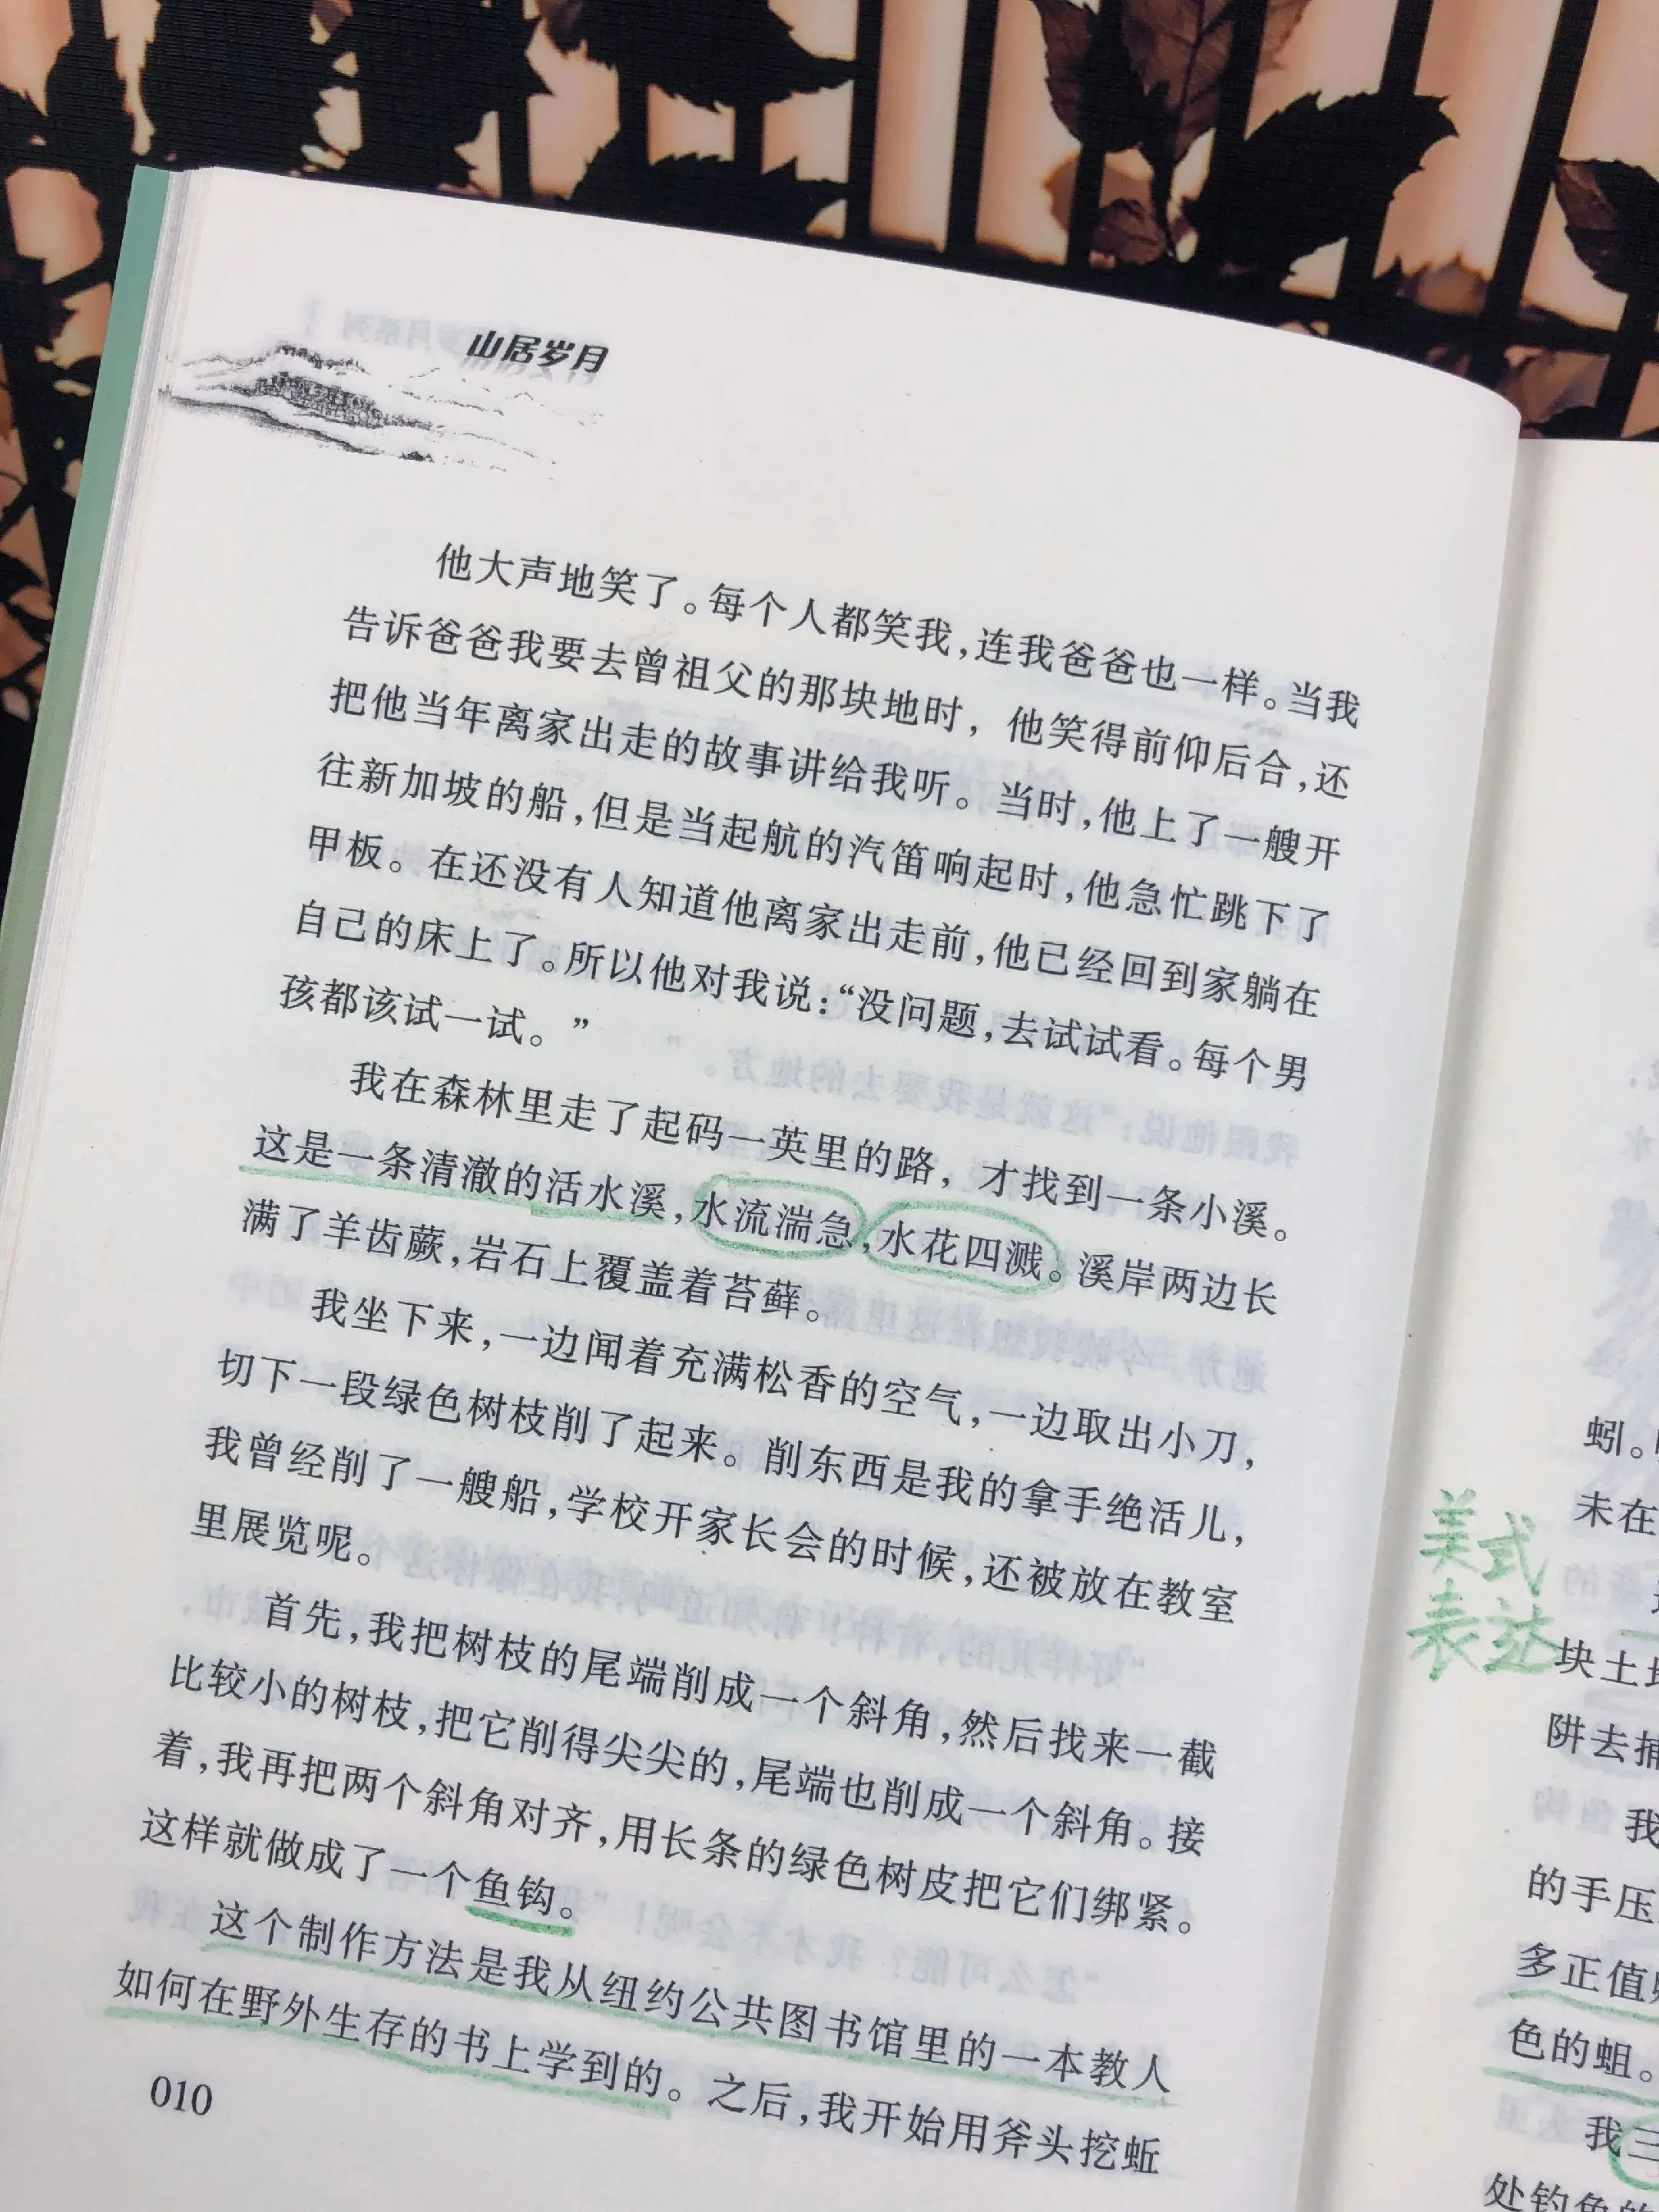 山居岁月
他大声地笑了。每个人都笑我，连我爸爸也一样。当我
告诉爸爸我要去曾祖父的那块地时，他笑得前仰后合，还
把他当年离家出走的故事讲给我听。当时，他上了一艘开
往新加坡的船，但是当起航的汽笛响起时，他急忙跳下了
甲板。在还没有人知道他离家出走前，他已经回到家躺在
自己的床上了。所以他对我说：“没问题，去试试看。每个男
孩都该试一试。”
我在森林里走了起码一英里的路，才找到一条小溪。
这是一条清澈的活水溪，水流湍急，水花四溅。溪岸两边长
满了羊齿蕨，岩石上覆盖着苔藓。
我坐下来，一边闻着充满松香的空气，一边取出小刀，
切下一段绿色树枝削了起来。削东西是我的拿手绝活儿，
我曾经削了一艘船，学校开家长会的时候，还被放在教室
里展览呢。
首先，我把树枝的尾端削成一个斜角，然后找来一截
比较小的树枝，把它削得尖尖的，尾端也削成一个斜角。接
着，我再把两个斜角对齐，用长条的绿色树皮把它们绑紧。
这样就做成了一个鱼钩。
这个制作方法是我从纽约公共图书馆里的一本教人
如何在野外生存的书上学到的。之后，我开始用斧头挖蚯
010
蚓。
未在
美式
表达
块土
阱去捕
我
的手压
多正值
色的蛆。
我三
处钓鱼的